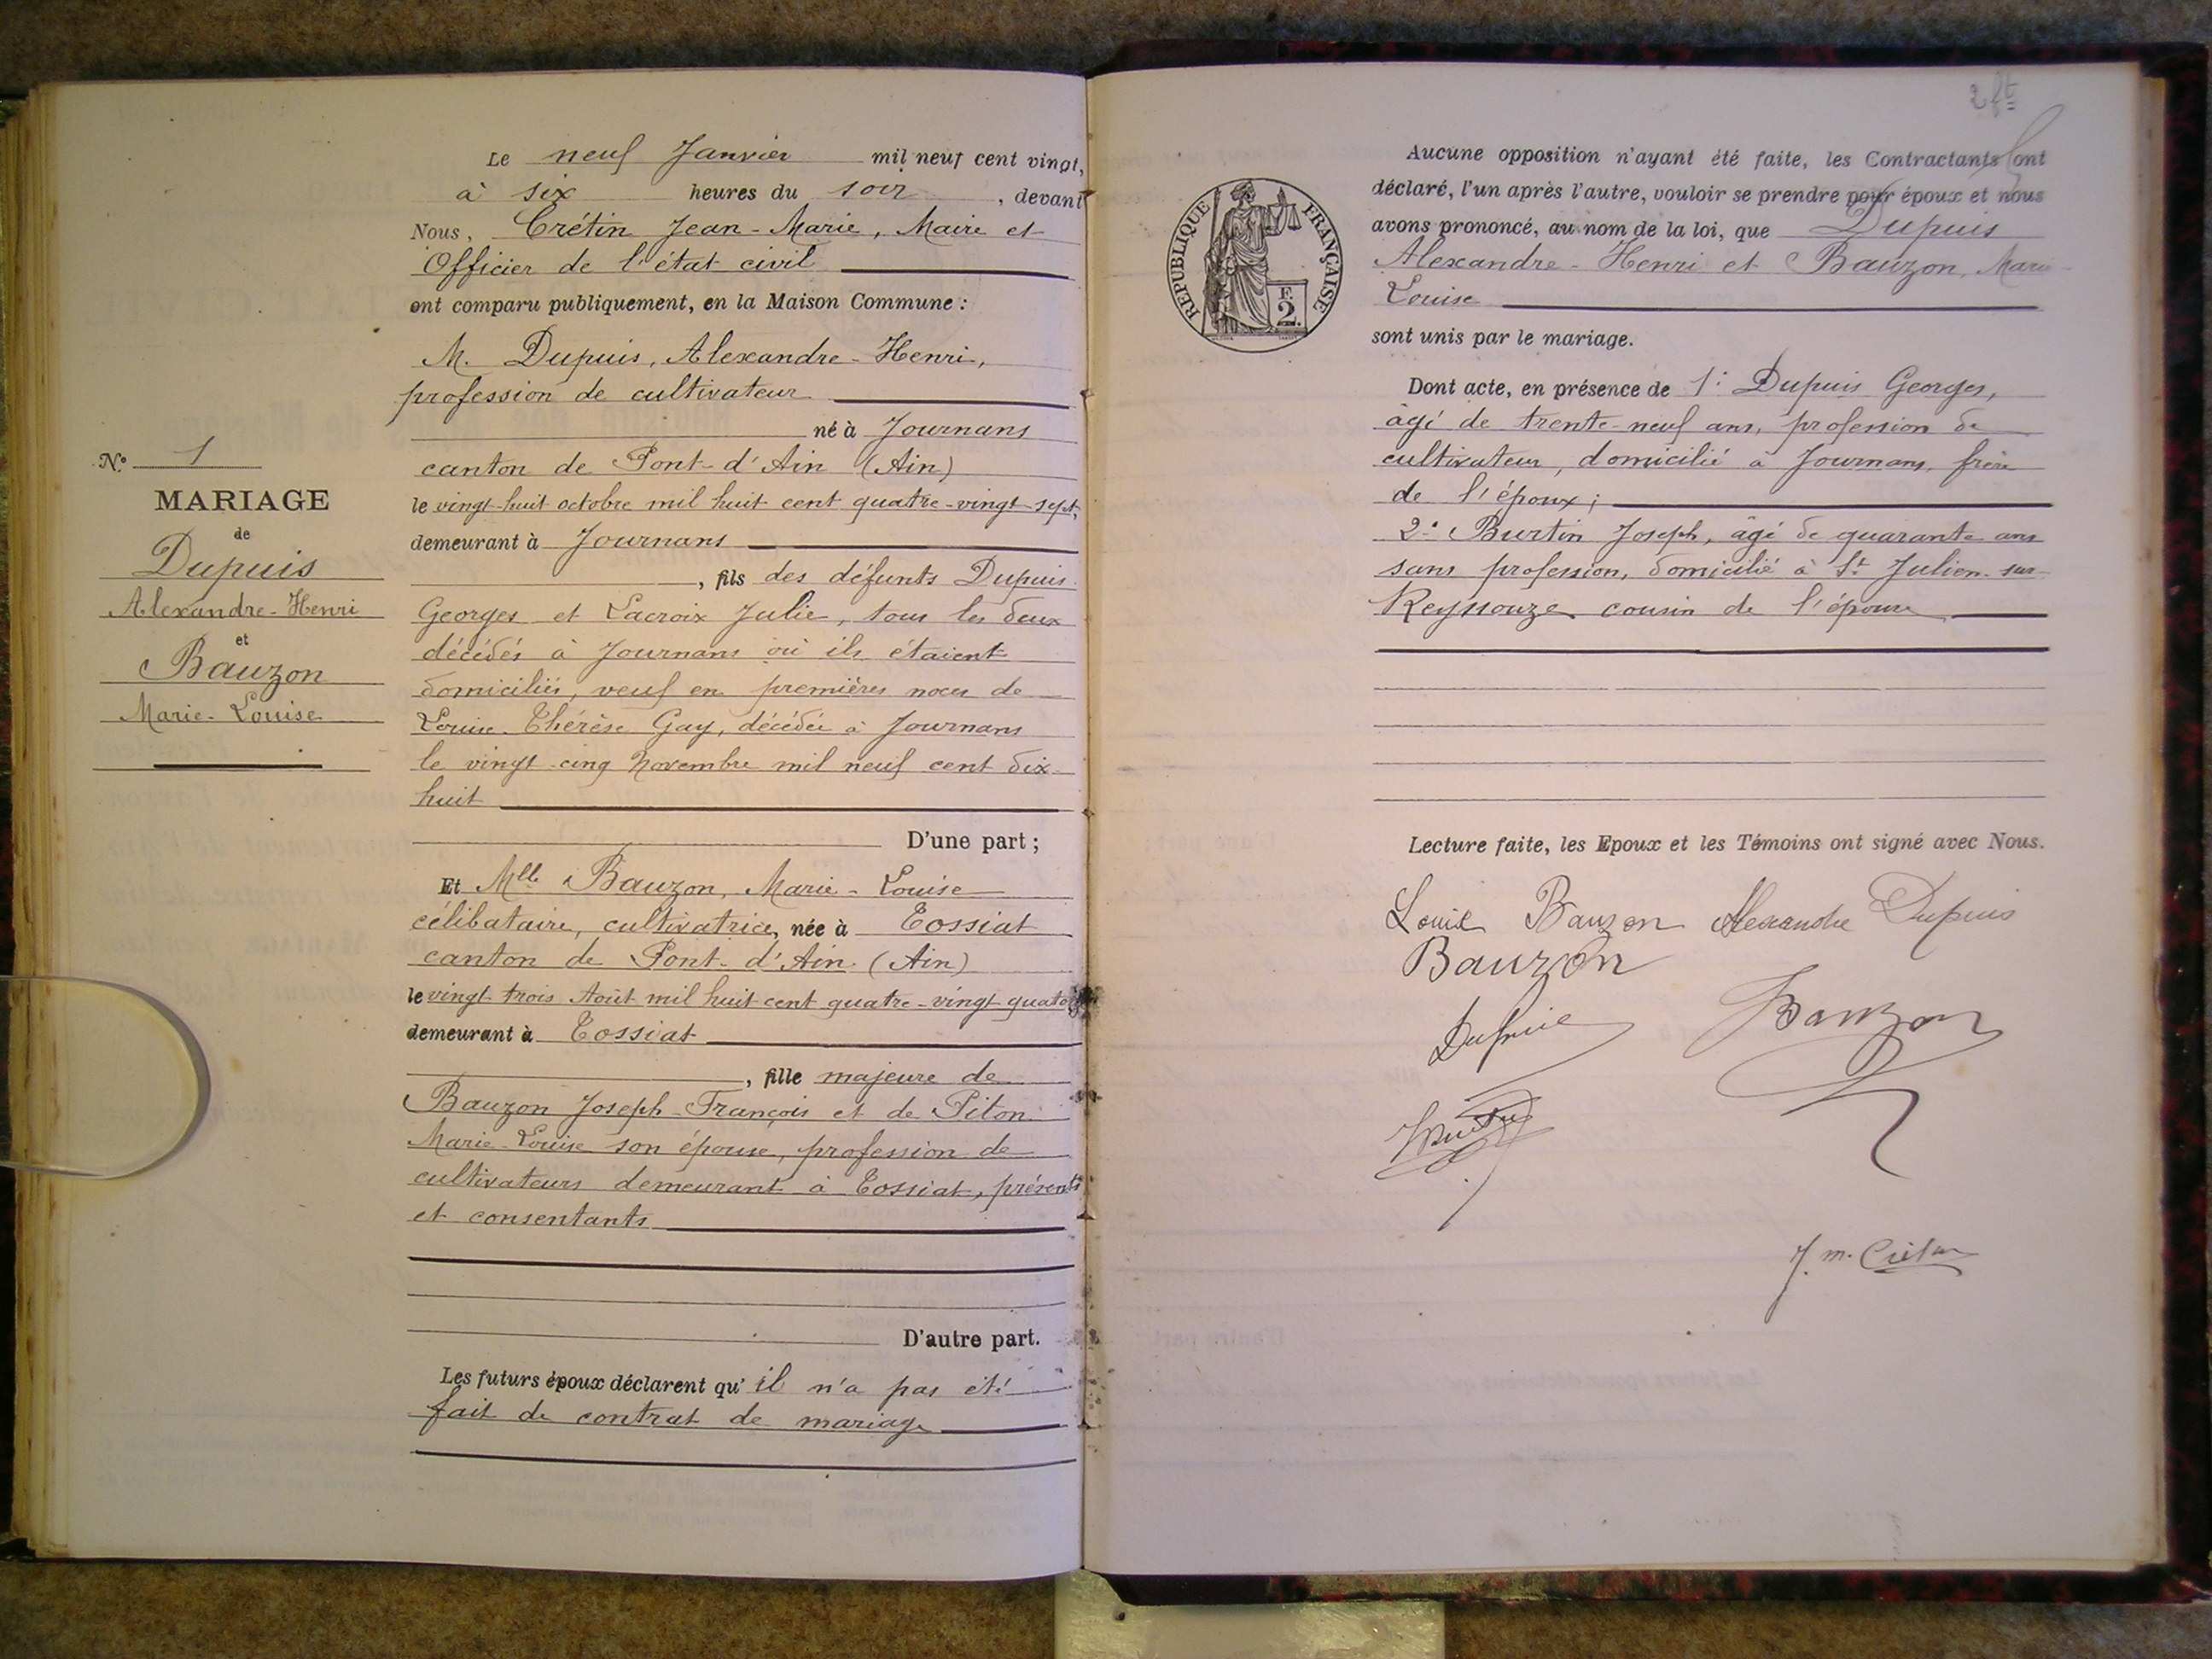 N.º 1
MARIAGE
de
Dupuis
Alexandre-Henri
et
Bauzon
Marie-Louise
Le neuf Janvier mil neuf cent vingt,
à six heures du soir, devant
Nous, Crétin Jean-Marie, Maire et
Officier de l'état civil
ont comparu publiquement, en la Maison Commune :
M. Dupuis, Alexandre-Henri,
profession de cultivateur
né à Journans
canton de Pont-d'Ain (Ain)
le vingt-huit octobre mil huit cent quatre-vingt-sept,
demeurant à Journans
, fils des défunts Dupuis
Georges et Lacroix Julie, tous les deux
décédés à Journans où ils étaient
domiciliés, veuf en premières noces de
Louise Thérèse Gay, décédée à Journans
le vingt-cinq Novembre mil neuf cent dix-
huit
D'une part ;
Et Mlle Bauzon, Marie-Louise
célibataire, cultivatrice, née à Tossiat
canton de Pont-d'Ain (Ain)
le vingt trois Août mil huit cent quatre-vingt quatorze
demeurant à Tossiat
, fille majeure de
Bauzon Joseph-François et de Piton
Marie-Louise son épouse, profession de
cultivateurs demeurant à Tossiat, présents
et consentants
D'autre part.
Les futurs époux déclarent qu'il n'a pas été
fait de contrat de mariage
2 ft
RÉPUBLIQUE FRANÇAISE
F.
2.
Aucune opposition n'ayant été faite, les Contractants ont
déclaré, l'un après l'autre, vouloir se prendre pour époux et nous
avons prononcé, au nom de la loi, que Dupuis
Alexandre-Henri et Bauzon, Marie-
Louise
sont unis par le mariage.
Dont acte, en présence de 1° Dupuis Georges,
âgé de trente-neuf ans, profession de
cultivateur, domicilié à Journans, frère
de l'époux ;
2° Burtin Joseph, âgé de quarante ans
sans profession, domicilié à St Julien-sur-
Reyssouze cousin de l'épouse
Lecture faite, les Epoux et les Témoins ont signé avec Nous.
Louise Bauzon Alexandre Dupuis
Bauzon
Dupuis Bauzon
J. m. Crétin